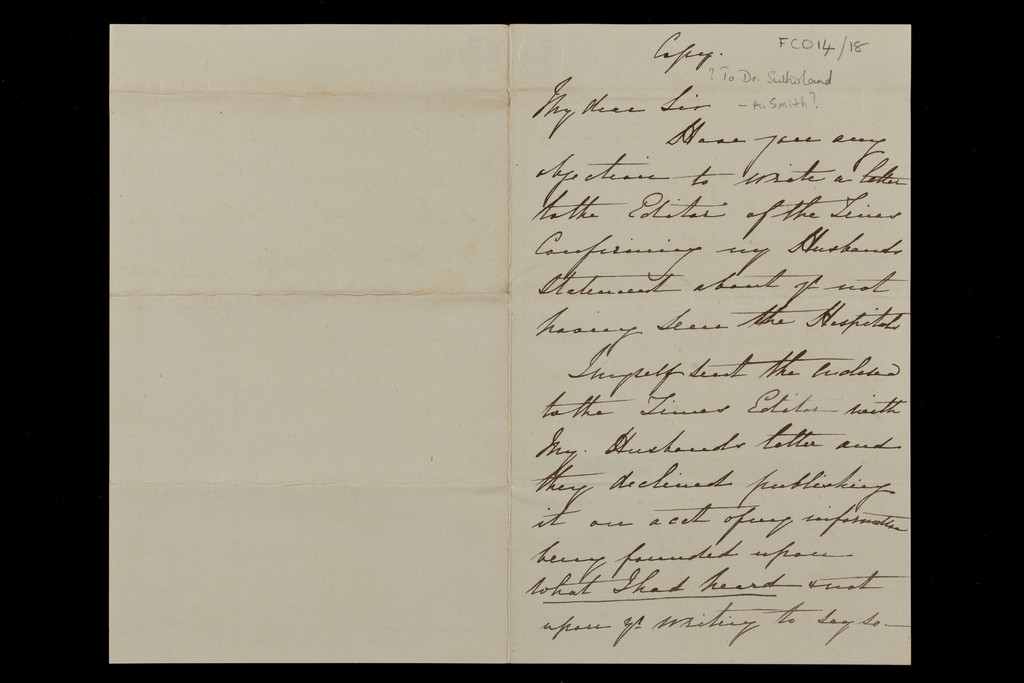 Copy.
FCO14/18
? To Dr. Sutherland
- A. Smith?
My dear Sir
Have you any
objection to write a letter
to the Editor of the Times
Confirming my Husbands
Statement about yr not
having seen the Hospitals
I myself sent the enclosed
to the Times Editor with
My. Husbands letter and
they declined publishing
it on acct of my information
being founded upon
what I had heard & not
upon yr writing to say so—